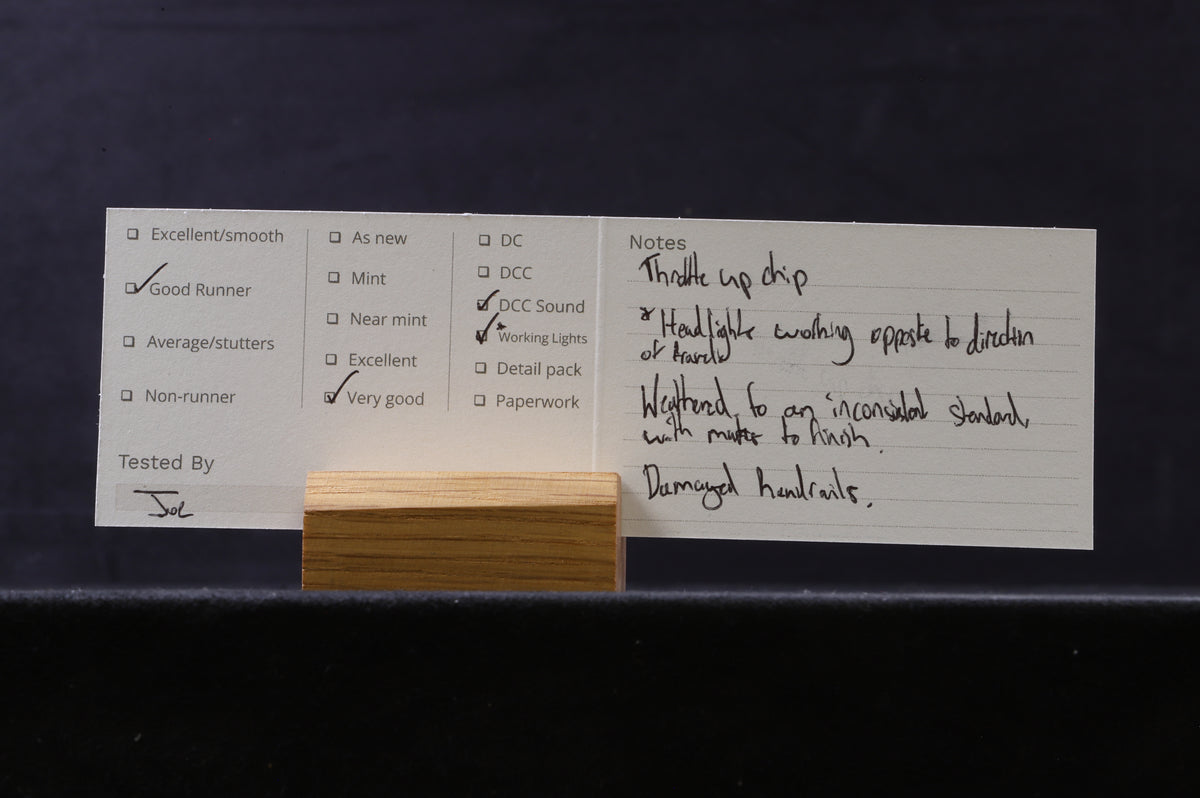 Excellent/smooth
Good Runner
Average/stutters
Non-runner
Tested By
Joe
As new
Mint
Near mint
Excellent
Very good
DC
DCC
DCC Sound
*Working Lights
Detail pack
Paperwork
Notes
Throttle up chip
*Headlights working opposite to direction
of travels
Weathered, to an inconsistent standard,
with marks to finish.
Damaged handrails.